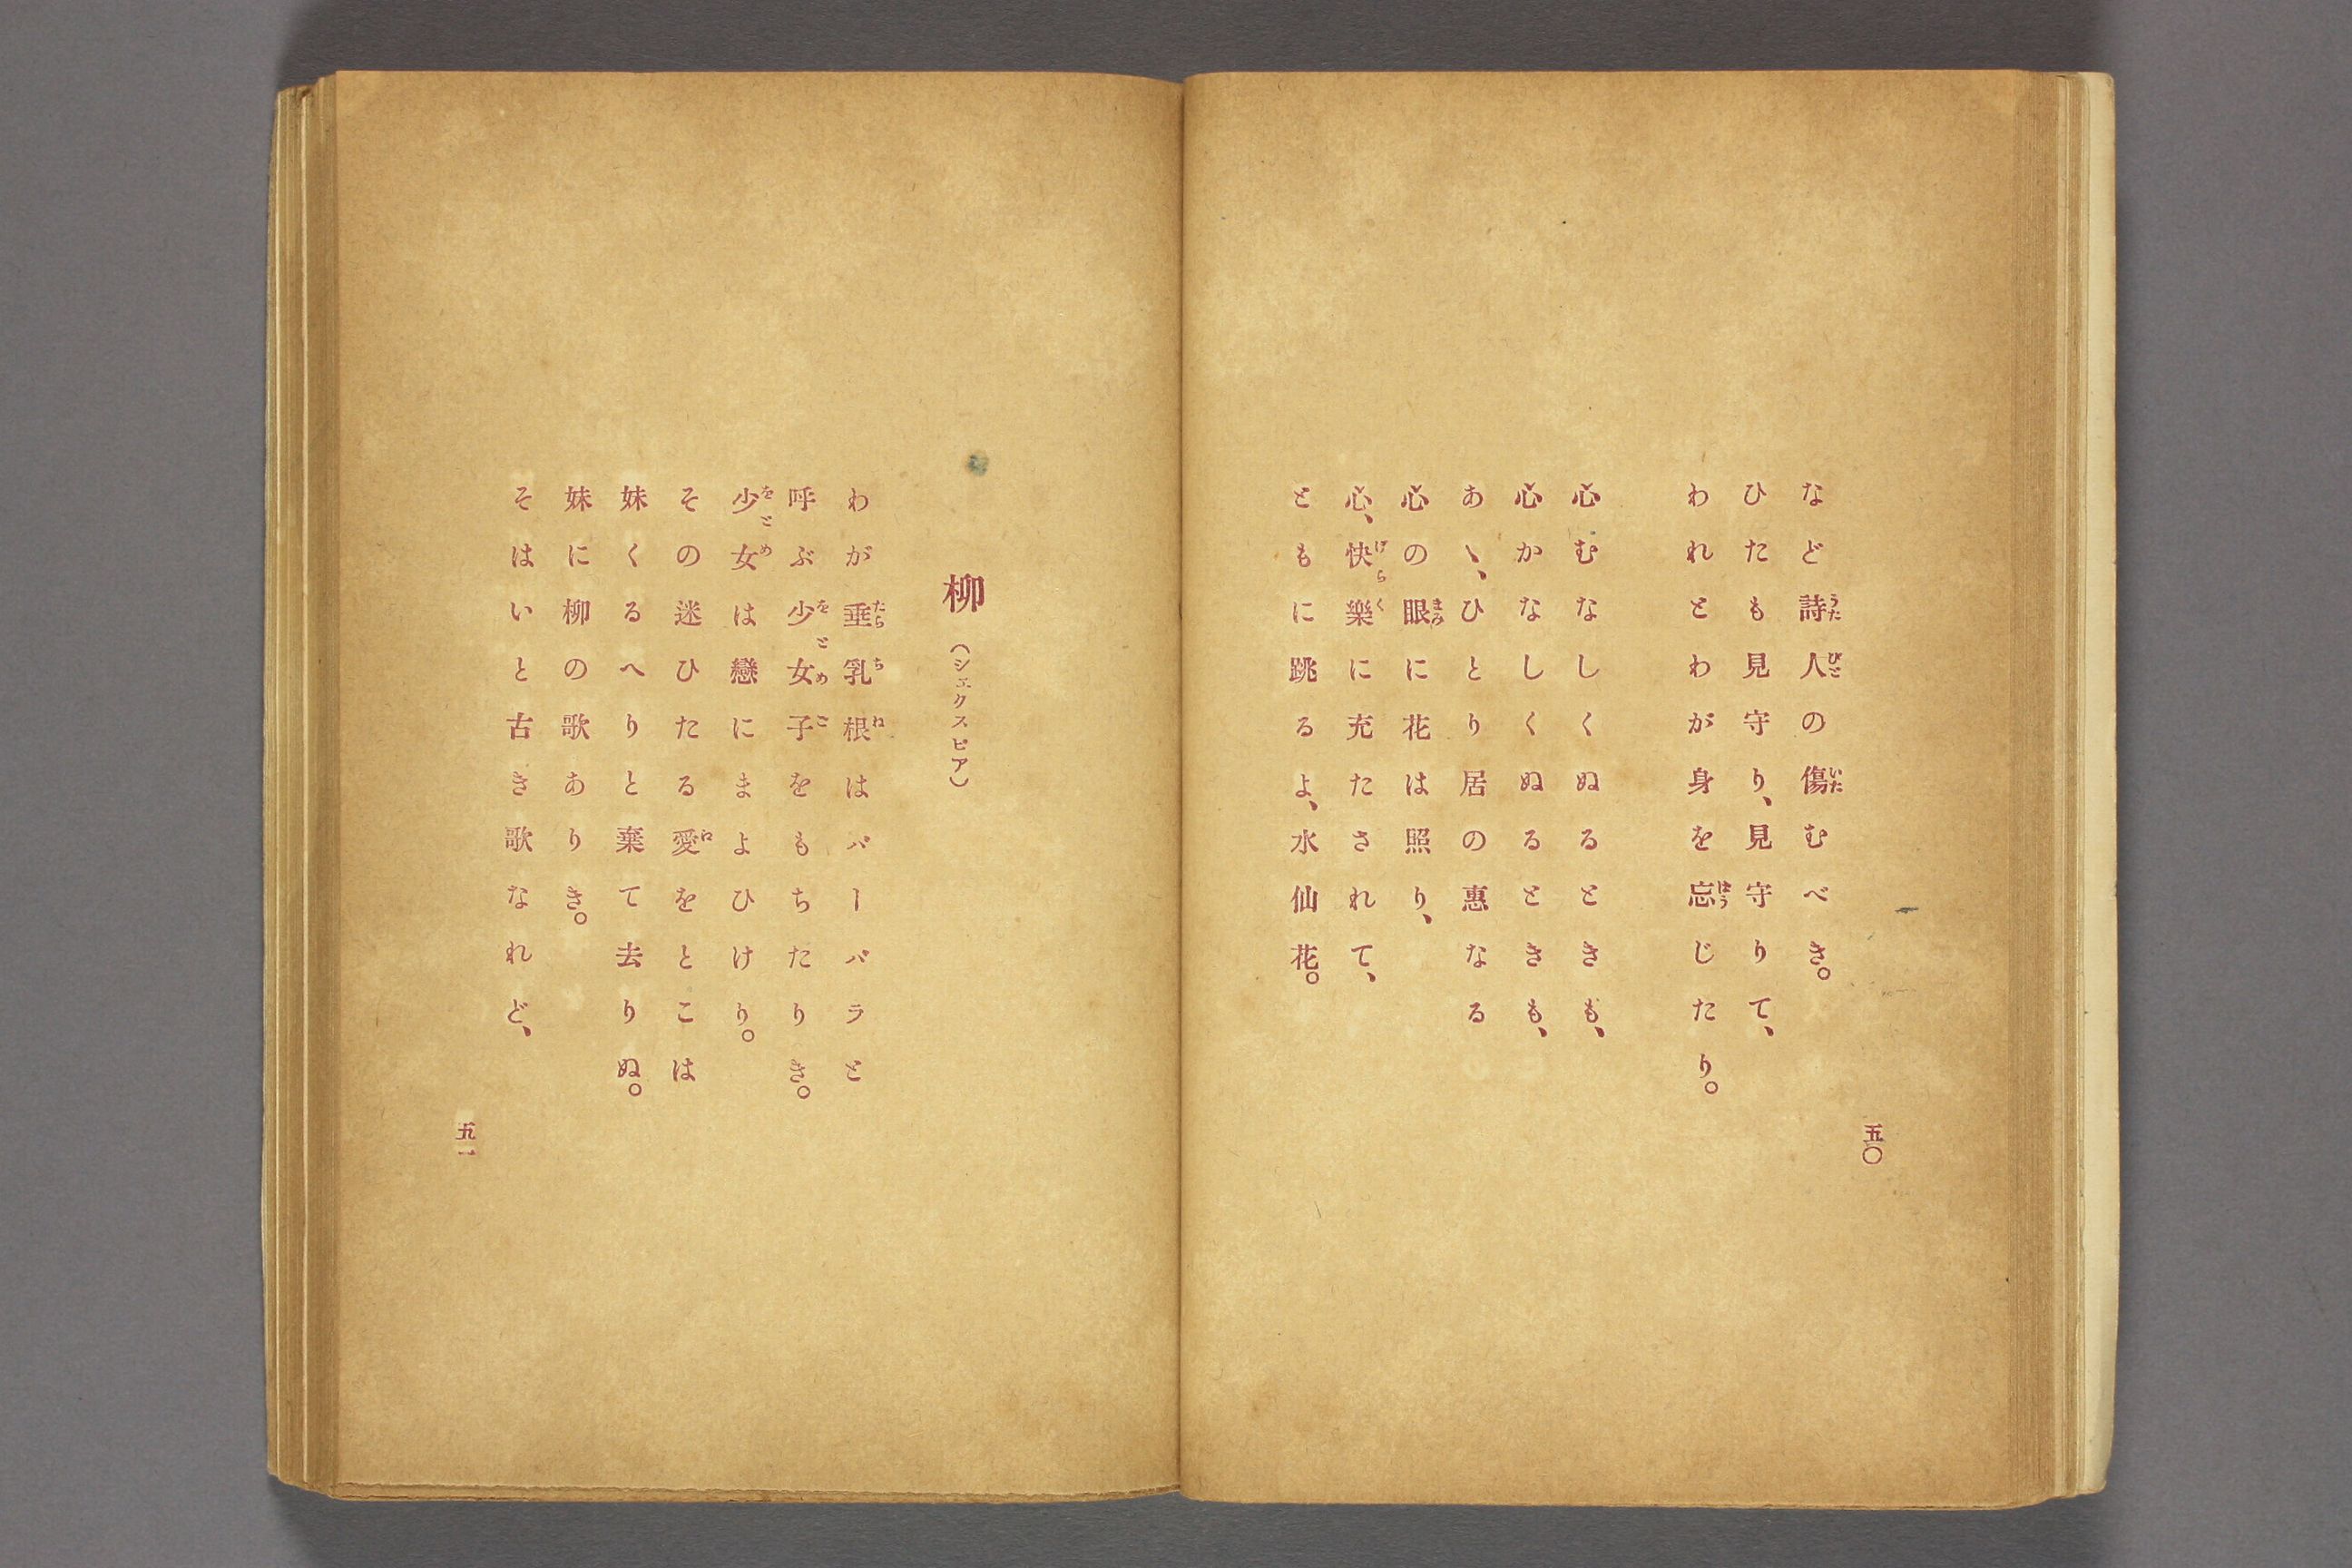 など詩人の傷むべき。
ひたも見守り、見守りて、
われとわが身を忘じたり。
心むなしくぬるときも、
心かなしくぬるときも、
あゝ、ひとり居の惠なる
心の眼に花は照り、
心、快樂に充たされて、
ともに跳るよ、水仙花。
五〇
柳 (シェクスピア)
わが垂乳根はバーバラと
呼ぶ少女子をもちたりき。
少女は戀にまよひけり。
その迷ひたる愛をとこは
妹くるへりと棄て去りぬ。
妹に柳の歌ありき。
そはいと古き歌なれど、
五一